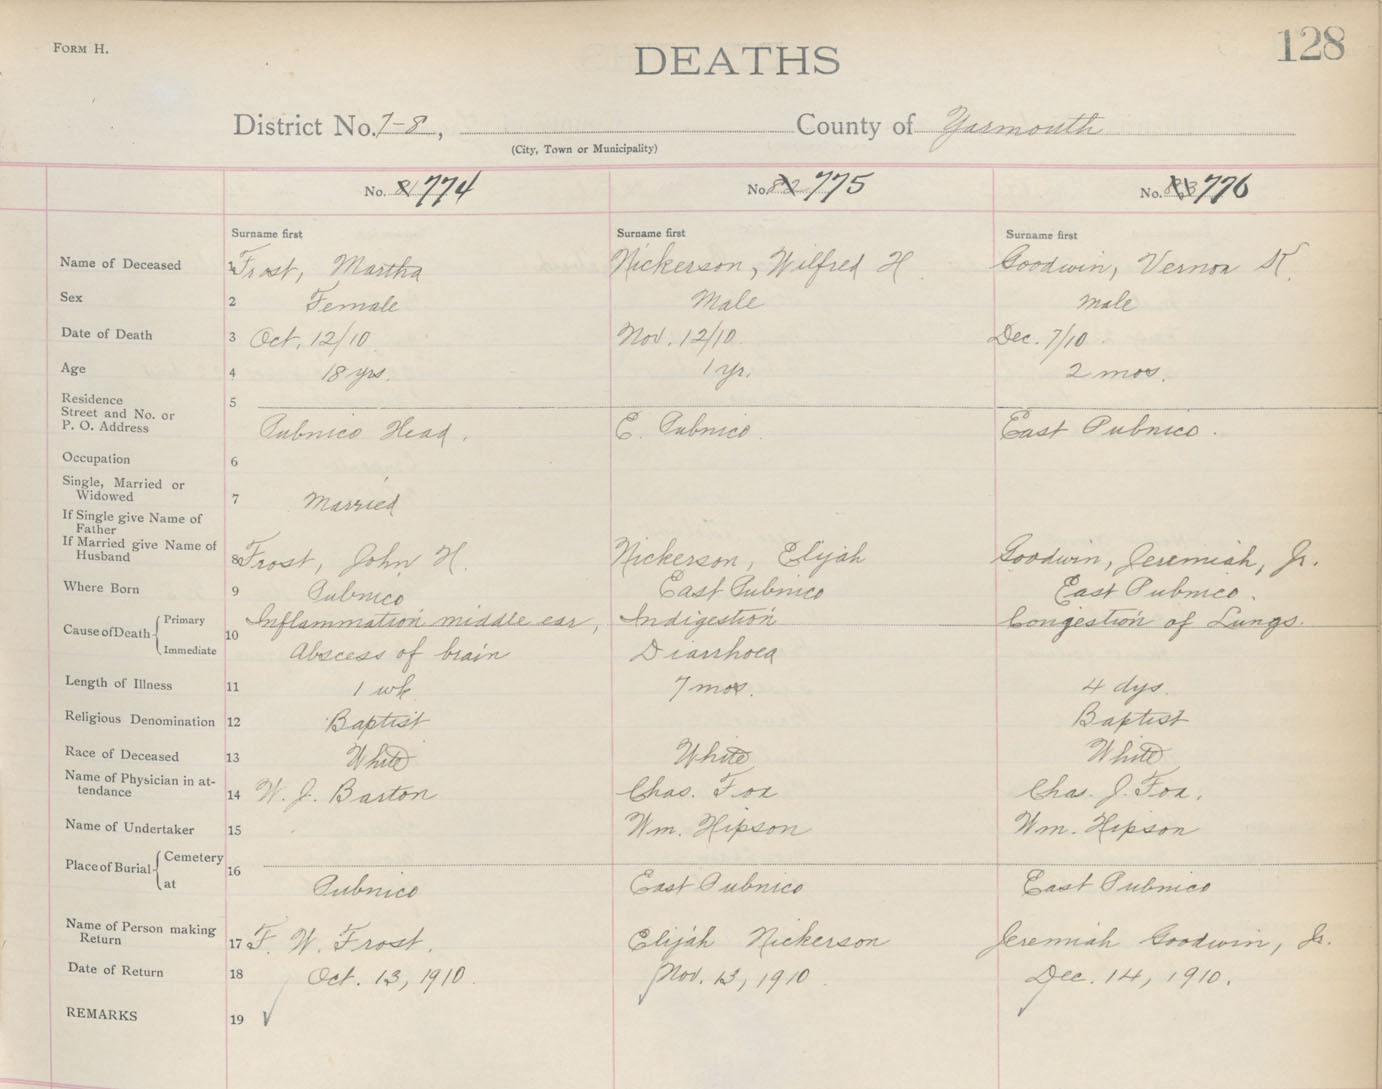 FORM H.
DEATHS
128
District No. 7-8, County of Yarmouth
(City, Town or Municipality)
No. 81 774 No. 82 775 No. 83 776
Surname first Surname first Surname first
Name of Deceased 1 Frost, Martha Nickerson, Wilfred H. Goodwin, Vernon K.
Sex 2 Female Male male
Date of Death 3 Oct. 12/10 Nov. 12/10 Dec. 7/10
Age 4 18 yrs. 1 yr. 2 mos.
Residence
Street and No. or 5
P. O. Address Pubnico Head. E. Pubnico East Pubnico.
Occupation 6
Single, Married or
Widowed 7 Married
If Single give Name of
Father
If Married give Name of
Husband 8 Frost, John H. Nickerson, Elijah Goodwin, Jeremiah, Jr.
Where Born 9 Pubnico East Pubnico East Pubnico.
Cause of Death Primary 10 Inflammation middle ear, Indigestion Congestion of Lungs.
Immediate Abscess of brain Diarrhoea
Length of Illness 11 1 wk 7 mos. 4 dys.
Religious Denomination 12 Baptist Baptist
Race of Deceased 13 White White White
Name of Physician in at-
tendance 14 W. J. Barton Chas. Fox Chas. J. Fox.
Name of Undertaker 15 Wm. Hipson Wm. Hipson
Place of Burial Cemetery 16
at Pubnico East Pubnico East Pubnico
Name of Person making
Return 17 F. W. Frost. Elijah Nickerson Jeremiah Goodwin, Jr.
Date of Return 18 Oct. 13, 1910 Nov. 13, 1910 Dec. 14, 1910.
REMARKS 19